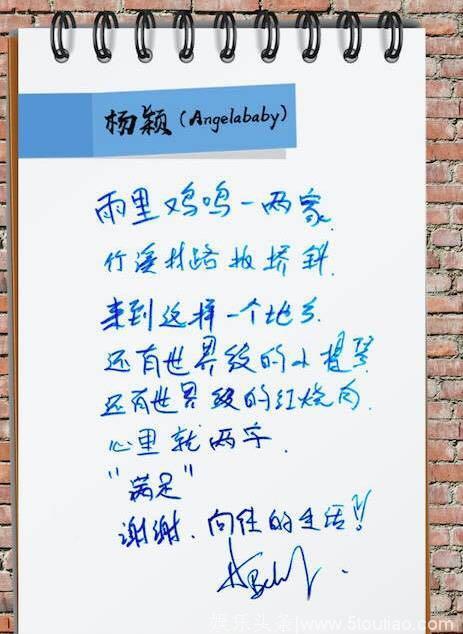 杨颖(Angelababy)
雨里鸡鸣一两家.
竹溪村路板桥斜.
来到这样一个地方.
还有世界级的小提琴
还有世界级的红烧肉.
心里就两字.
“满足”
谢谢.向往的生活!!
娱乐头条|www.5toutiao.com